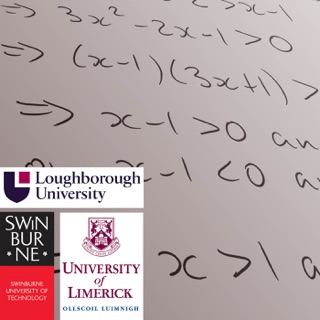 ⇒ 3x² - 2x - 1 > 0
⇒ (x-1)(3x+1) >
⇒ x-1 > 0 an
x-1 < 0 a
x > 1 a
Loughborough
University
SWIN
BUR
*NE*
SWINBURNE
UNIVERSITY OF
TECHNOLOGY
UNIVERSITY
of
LIMERICK
OLLSCOIL LUIMNIGH